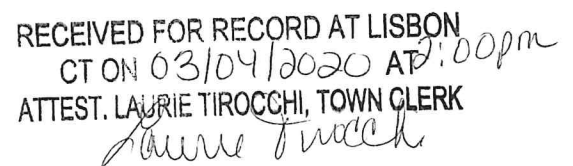 RECEIVED FOR RECORD AT LISBON
CT ON 03/04/2020 AT 2:00pm
ATTEST. LAURIE TIROCCHI, TOWN CLERK
Laurie Tirocchi